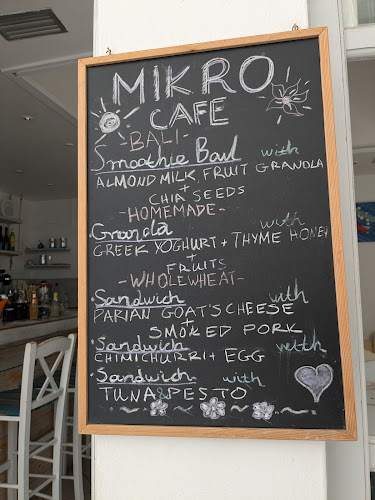 MIKRO
CAFE
-BALI-
Smoothie Bowl with
ALMOND MILK, FRUIT GRANOLA
+
CHIA SEEDS
-HOMEMADE-
Granola with
GREEK YOGHURT + THYME HONEY
+
FRUITS
-WHOLEWHEAT-
·Sandwich with
PARIAN GOAT'S CHEESE
+
SMOKED PORK
·Sandwich with
CHIMICHURRI + EGG
·Sandwich with
TUNA & PESTO